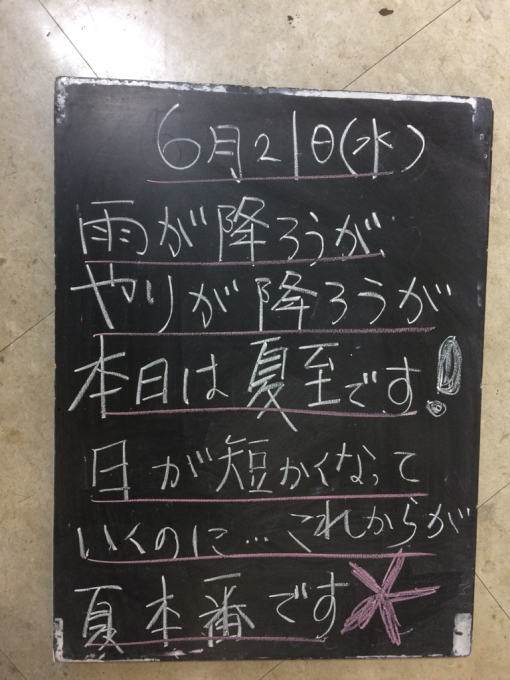 6月21日(水)
雨が降ろうが
やりが降ろうが
本日は夏至です!
日が短かくなって
いくのに…これからが
夏本番です